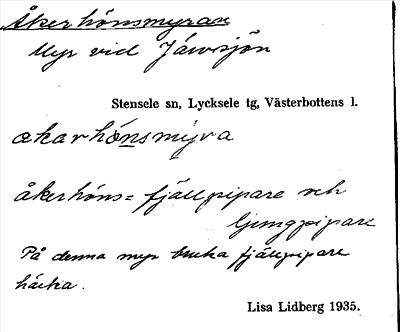 Åkerhönsmyran
Myr vid Járvsjön
Stensele sn, Lycksele tg, Västerbottens l.
akarhönsmyra
åkerhöns = fjällpipare och
ljungpipare
På denna myr bruka fjällpipare
häcka.
Lisa Lidberg 1935.